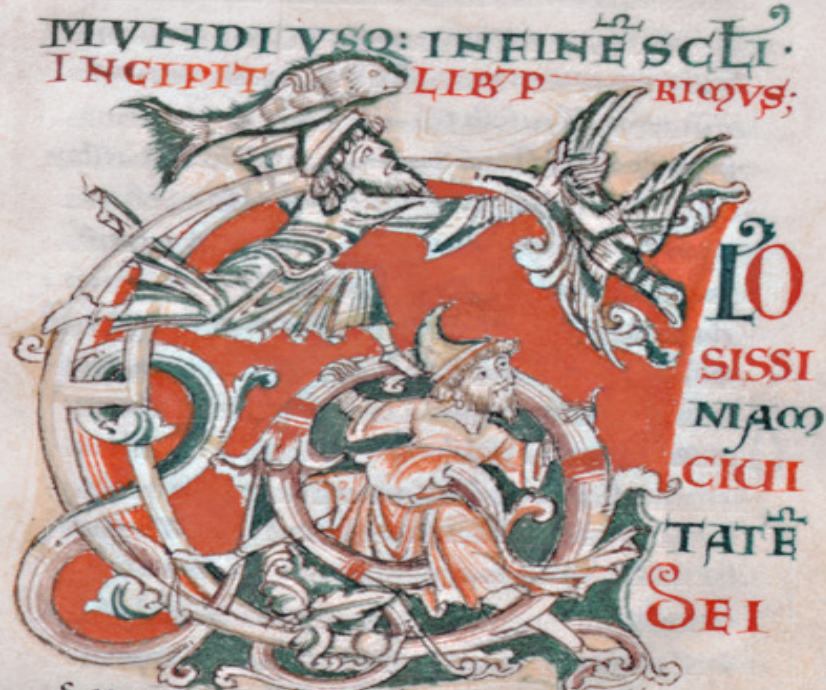 MVNDI VSQ: IN FINE̅ SCL̅I·
INCIPIT LIB' P RIMVS;
G LO
SISSI
MAM
CIUI
TATE̅
DEI